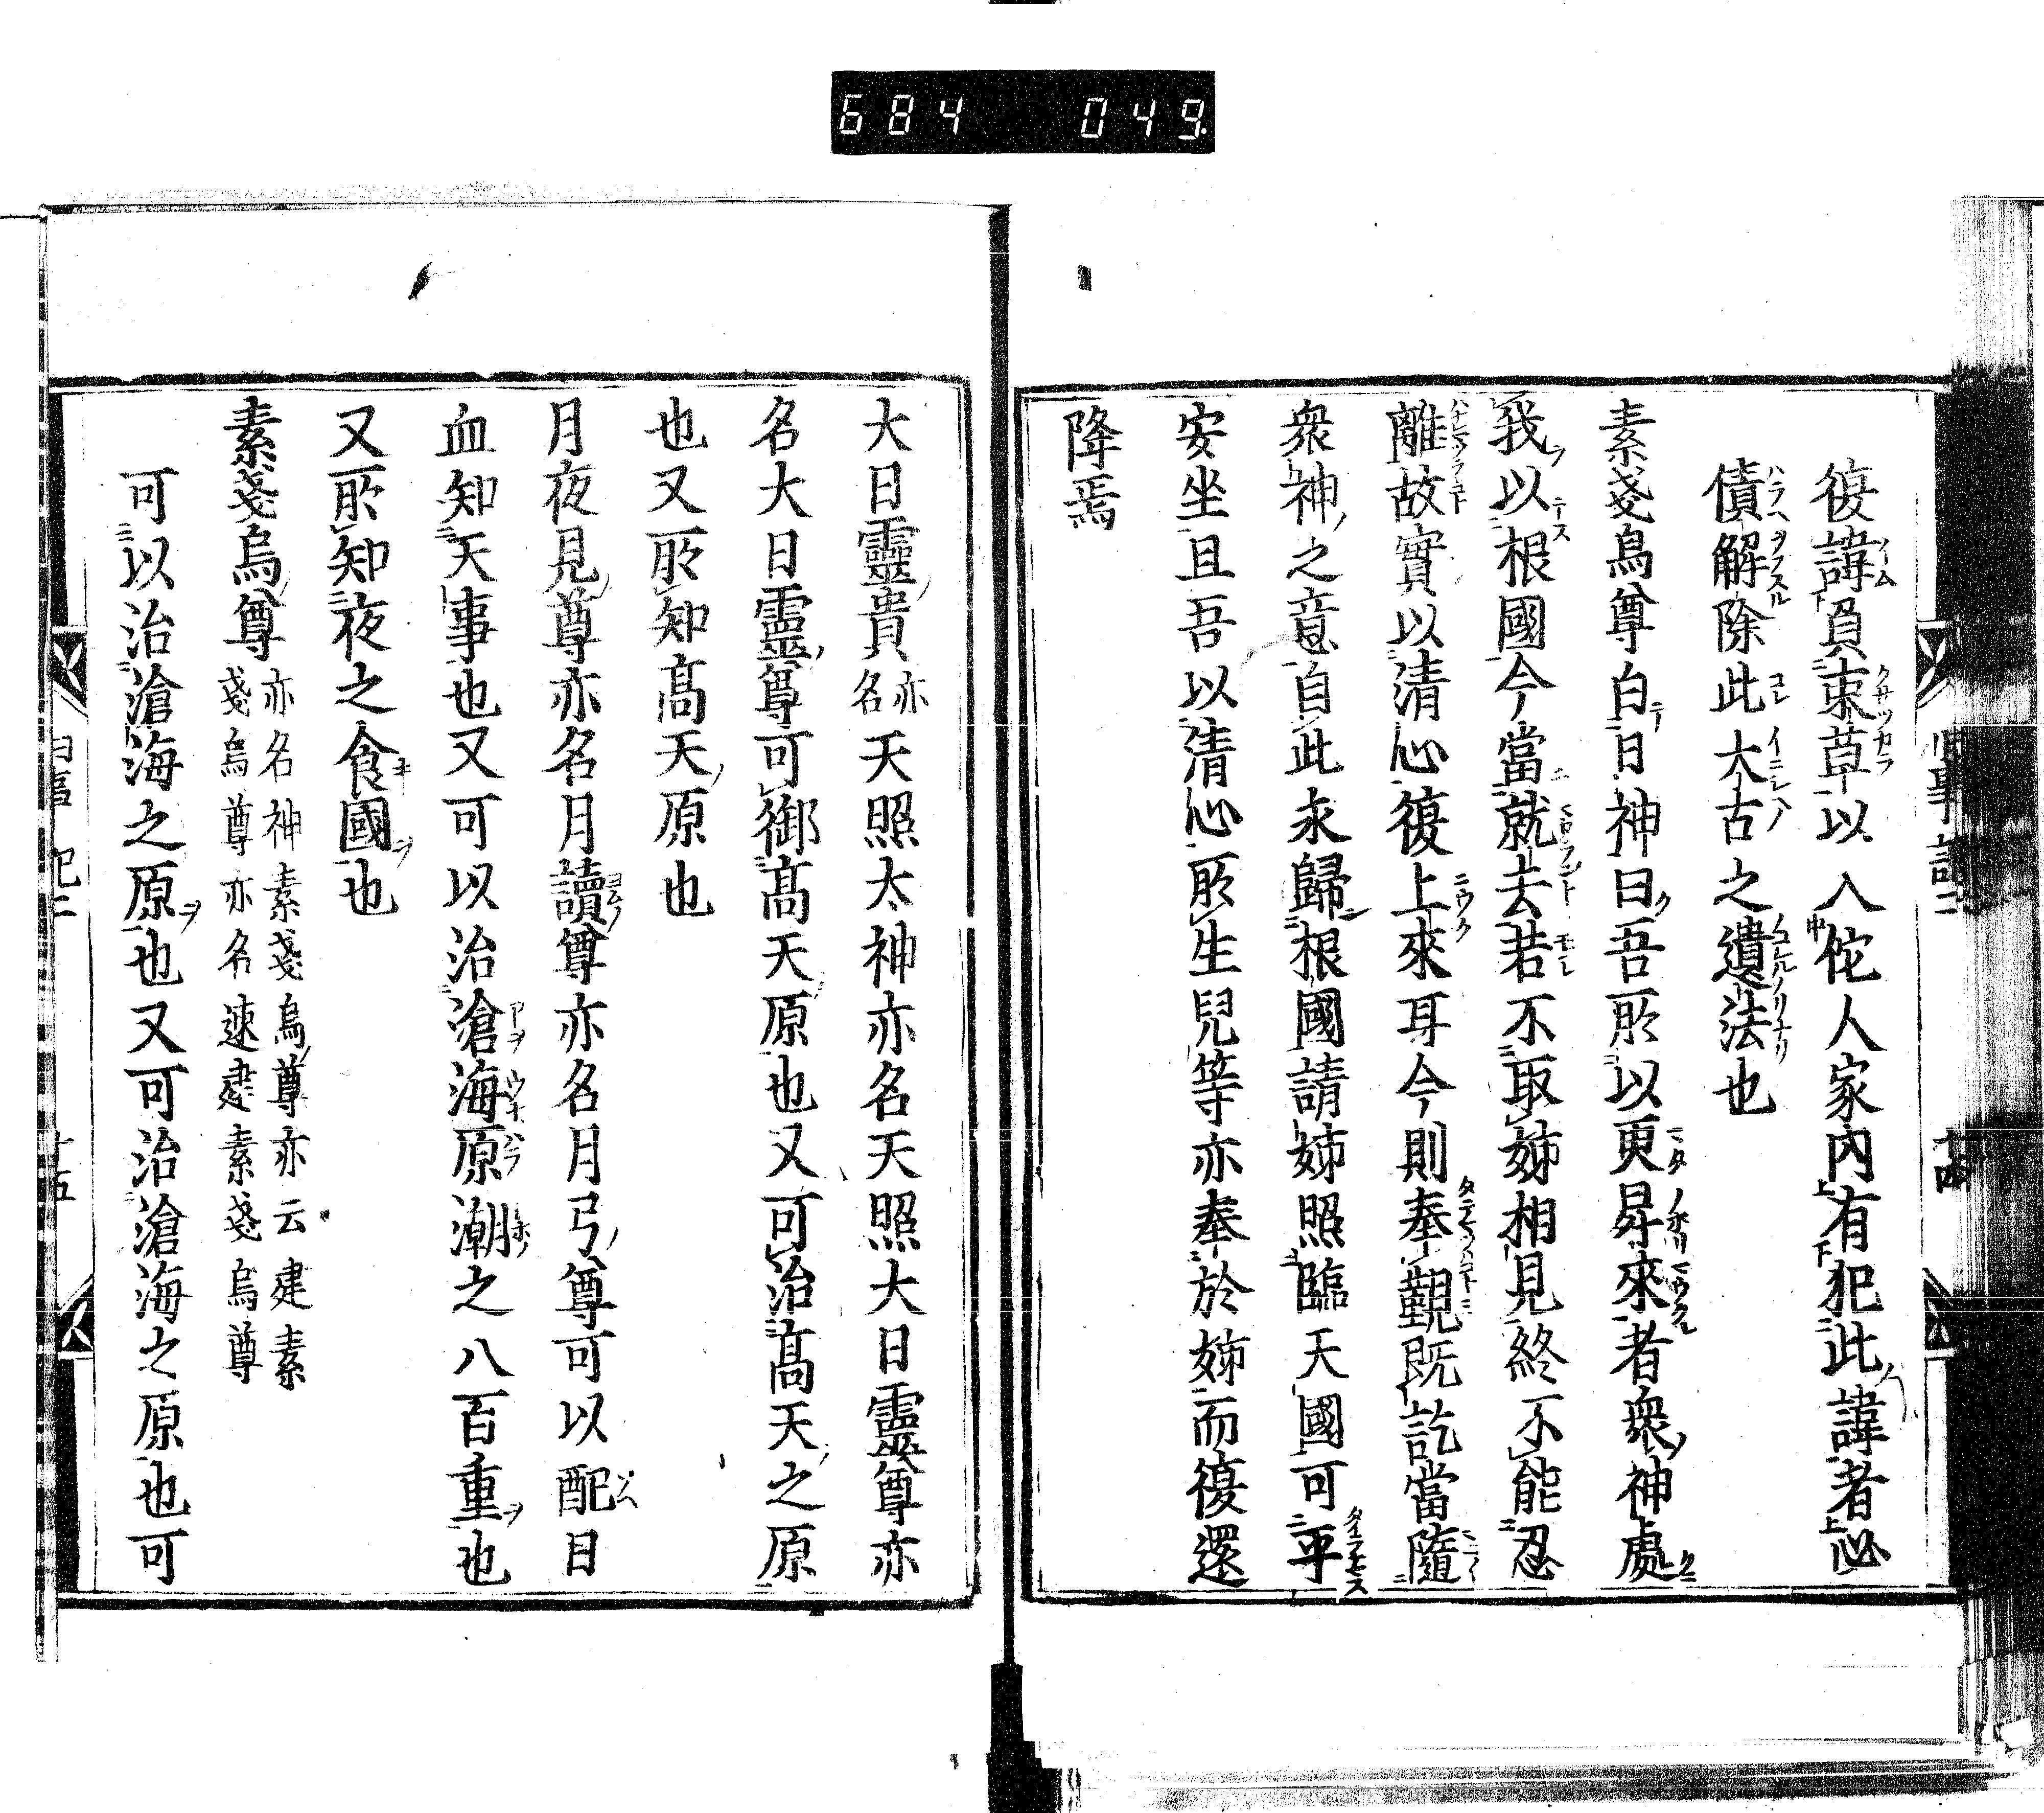 684 049
復諱負束草以入佗人家內有犯此諱者必
債解除此大古之遺法也
素戔烏尊白日神曰吾所以更昇來者衆神處
我以根國今當就去若不取姉相見終不能忍
離故實以清心復上來耳今則奉覲既訖當隨
衆神之意自此永歸根國請姉照臨天國可平
安坐且吾以清心所生兒等亦奉於姉而復還
降焉
大日靈貴亦名天照太神亦名天照大日靈尊亦
名大日靈尊可御髙天原也又可治髙天之原
也又所知髙天原也
月夜見尊亦名月讀尊亦名月弓尊可以配日
血知天事也又可以治滄海原潮之八百重也
又所知夜之食國也
素戔烏尊亦名神素戔烏尊亦云建素
戔烏尊亦名速建素戔烏尊
可以治滄海之原也又可治滄海之原也可